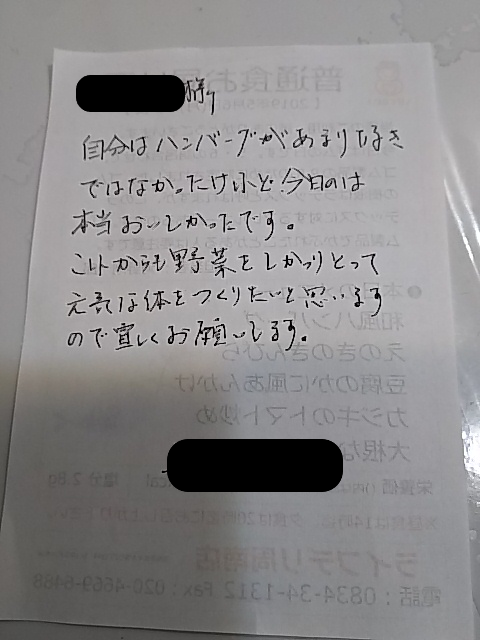 様
自分はハンバーグがあまり好き
ではなかったけれど今日のは
本当おいしかったです。
これからも野菜をしっかりとって
元気な体をつくりたいと思います
ので宜しくお願いします。
普通食お品
和風ハンバーグ
えのきのきんぴら
豆腐のかに風あんかけ
カジキのトマト炒め
大根な
栄養価
塩分 2.8g
ライフデリ周南店
電話：0834-34-1312 Fax：020-4669-6488